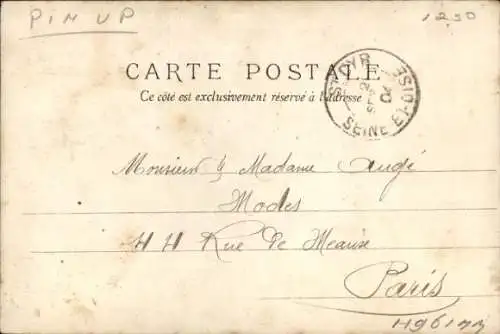 PIN UP
1250
CARTE POSTALE
Ce côté est exclusivement réservé à l'adresse
ST CYR
SEINE-ET-OISE
Monsieur & Madame Augé
Modes
44 Rue de Meaux
Paris